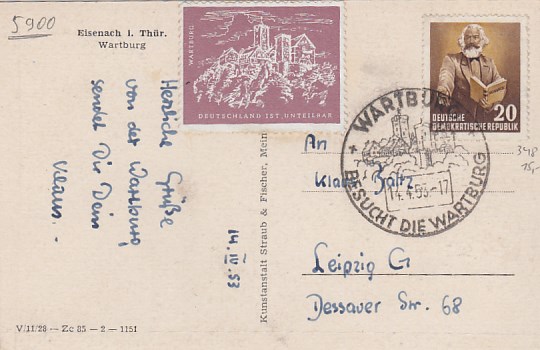 5900
Eisenach i. Thür.
Wartburg
Herzliche Grüße
von der Wartburg,
sendet Dir Dein
Klaus.
14.IV.53
V/11/28 — Ze 85 — 2 — 1151
Kunstanstalt Straub & Fischer, Mein
WARTBURG
DEUTSCHLAND IST UNTEILBAR
20
DEUTSCHE
DEMOKRATISCHE REPUBLIK
WARTBURG
14.4.53-17
BESUCHT DIE WARTBURG
348
15,-
An
Klaus
Leipzig G
Dessauer Str. 68